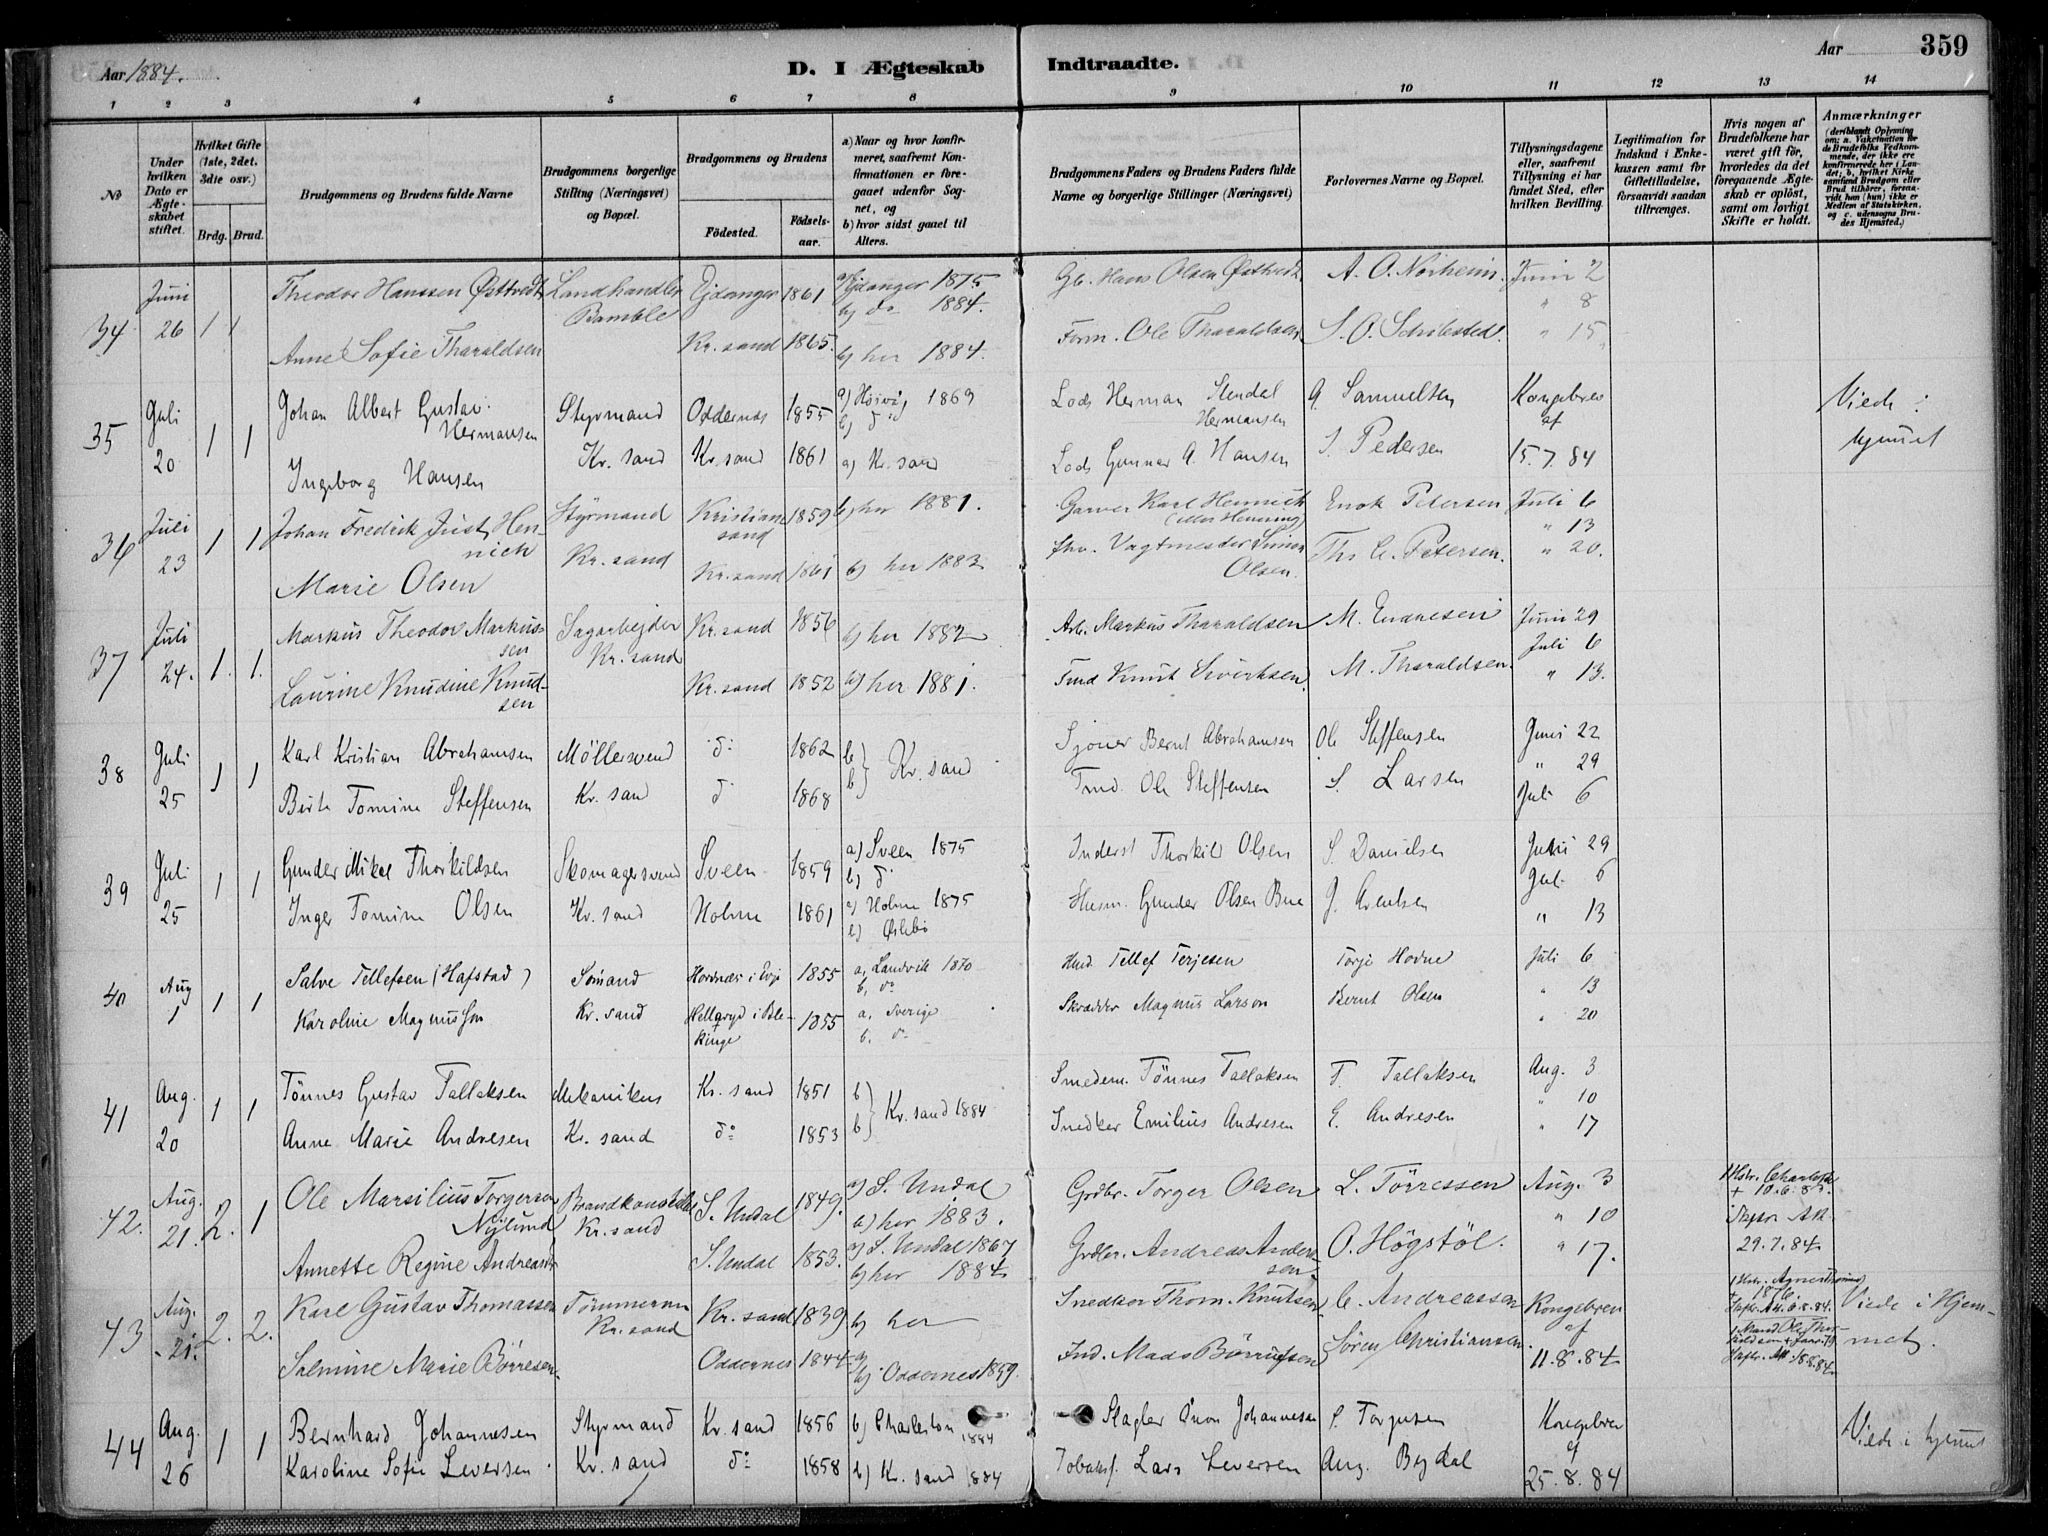 Aar 1884.
D. I Ægteskab Indtraadte.
Aar 359
1 2 3 4 5 6 7 8 9 10 11 12 13 14
No
Under hvilken Dato er Ægteskabet stiftet.
Hvilket Gifte (1ste, 2det, 3die osv.)
Brdg. Brud.
Brudgommens og Brudens fulde Navne
Brudgommens borgerlige Stilling (Næringsvei) og Bopæl.
Brudgommens og Brudens
Fødested. Fødselsaar.
a) Naar og hvor konfirmeret, saafremt Konfirmationen er foregaaet udenfor Sognet, og
b) hvor sidst gaaet til Alters.
Brudgommens Faders og Brudens Faders fulde Navne og borgerlige Stillinger (Næringsvei)
Forlovernes Navne og Bopæl.
Tillysningsdagene eller, saafremt Tillysning ei har fundet Sted, efter hvilken Bevilling.
Legitimation for Indskud i Enkekassen samt for Giftetilladelse, forsaavidt saadan tiltrænges.
Hvis nogen af Brudefolkene har været gift før, hvorledes da det foregaaende Ægteskab er opløst, samt om lovligt Skifte er holdt.
Anmærkninger
34 Juni 26 1 1 Theodor Hanssen Østtvedt Landhandler Bamble Ejdanger 1861 a) Ejdanger 1875 b) do 1884. Gb. Hans Olsen Østtvedt A. O. Norheim Juni 2
" 8
Anne Sofie Tharaldsen Kr. sand 1865. b) her 1884. Form. Ole Tharaldsen S. O. Schibsted. " 15
35 Juli 20 1 1 Johan Albert Gustav Hermansen Styrmand Oddernes 1855 1869 Lods Herman Stendal Hermansen A. Samuelsen Kongebrev af Viede i hjemmet
Ingeborg Hansen Kr. sand Kr. sand 1861 a) Kr. sand Lods Gunnar A. Hansen S. Pedersen 15.7.84
36 Juli 23 1 1 Johan Fredrik Just Hennich Styrmand Kristiansand 1859 b) her 1881. Garver Karl Hennich (eller Henning) Enok Petersen Juli 6
" 13
Marie Olsen Kr. sand Kr. sand 1861 b) her 1883 fhv. Vagtmester Simon Olsen. Ths C. Petersen. " 20.
37 Juli 24. 1. 1. Markus Theodor Markussen Sagarbejder Kr. sand Kr. sand 1856 b) her 1882 Arb. Markus Tharaldsen M. Endresen Juni 29
Juli 6
Laurine Knudine Knudsen Kr. sand 1852 b) her 1881. Tmd Knut Siverksen M. Tharaldsen. " 13.
38 Juli 25 1 1 Karl Kristian Abrahamsen Möllersvend do 1862 b} Kr. sand Sjöner Bernt Abrahamsen Ole Steffensen Juni 22
" 29
Birte Tomine Steffensen Kr. sand do 1868 b} Tmd. Ole Steffensen S. Larsen Juli 6
39 Juli 25 1 1 Gunder Mikal Thorkildsen Skomagersvend Sveen 1859 a) Sveen 1875 b) do Inderst Thorkild Olsen S. Danielsen Juni 29
Juli 6
Inger Tomine Olsen Kr. sand Holme 1861 a) Holme 1875 b) Øslebö Husm. Gunder Olsen Bue J. Arentsen " 13
40 Aug 1 1 1 Salve Tellefsen (Hafstad) Sömand Hordnæs i Evje 1855 a, Landvik 1870 b, do Hmd Tellef Terjesen Torje Hodne Juli 6
" 13
Karoline Magnusson Kr. sand Hellaryd i Blekinge 1855 a. Sverige b. do Skrædder Magnus Larson Bernt Olsen " 20
41 Aug. 20 1 1 Tönnes Gustav Tallaksen Mekanikus Kr. sand 1851 b} Kr. sand 1884 Smedem. Tönnes Tallaksen T. Tallaksen Aug. 3
" 10
Anne Marie Andresen Kr. sand do 1853 b} Snedker Emilius Andresen E. Andresen " 17
42. Aug. 21. 2. 1 Ole Marsilius Torgersen Nylund Brandkonstabel Kr. sand S. Undal 1849. a) S. Undal b) her 1883. Grdbr. Torger Olsen L. Törressen Aug. 3
" 10
Annette Regine Andreasdr S. Undal 1853. a) S. Undal 1867 b) her 1884 Grdbr. Andreas Andersen O. Högstöl. " 17. 29.7.84
43 Aug. 21. 2. 2. Karl Gustav Thomassen Tömmerm Kr. sand Kr. sand 1839 b) her Snedker Thom. Knutsen C. Andreassen Kongebrev af Viede i Hjemmet.
Salmine Marie Börresen Oddernes 1844 b) Oddernes 1859. Ind. Mads Börresen Sören Christiansen. 11.8.84
44 Aug. 26 1 1 Bernhard Johannesen Styrmand Kr. sand 1856 b) Charleston 1884 Slagter Johannesen Torgersen Kongebrev af Viede i hjemmet
Karoline Sofie Leversen Kr. sand do 1858 b) Kr. sand 1884 Tobaksf. Lars Leversen Aug. Bydal 25.8.84